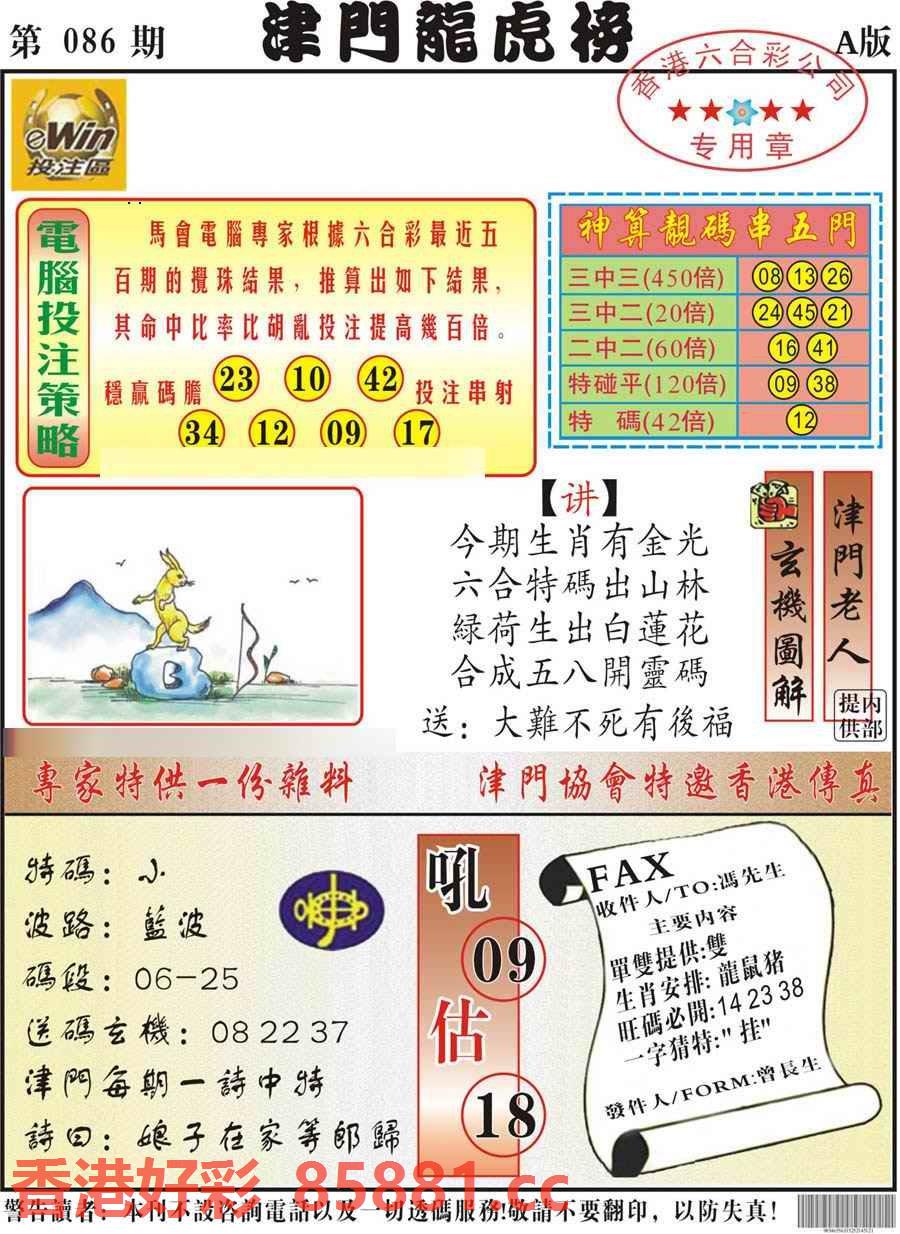 第 086 期
津門龍虎榜
A版
香港六合彩公司
专用章
eWin
投注區
電腦投注策略
馬會電腦專家根據六合彩最近五
百期的攪珠結果，推算出如下結果，
其命中比率比胡亂投注提高幾百倍。
穩贏碼膽 23 10 42 投注串射
34 12 09 17
神算靚碼串五門
三中三(450倍) 08 13 26
三中二(20倍) 24 45 21
二中二(60倍) 16 41
特碰平(120倍) 09 38
特 碼(42倍) 12
【讲】
今期生肖有金光
六合特碼出山林
緑荷生出白蓮花
合成五八開靈碼
送：大難不死有後福
玄機圖解
津門老人
内部提供
專家特供一份雜料
津門協會特邀香港傳真
特碼：小
波路：藍波
碼段：06-25
送碼玄機：08 22 37
津門每期一詩中特
詩曰：娘子在家等郎歸
吼
09
估
18
FAX
收件人/TO:馮先生
主要内容
單雙提供:雙
生肖安排:龍鼠猪
旺碼必開:14 23 38
一字猜特:"挂"
發件人/FORM:曾長生
香港好彩 85881.cc
警告讀者：本刊不設咨詢電話以及一切透碼服務!敬請不要翻印，以防失真!